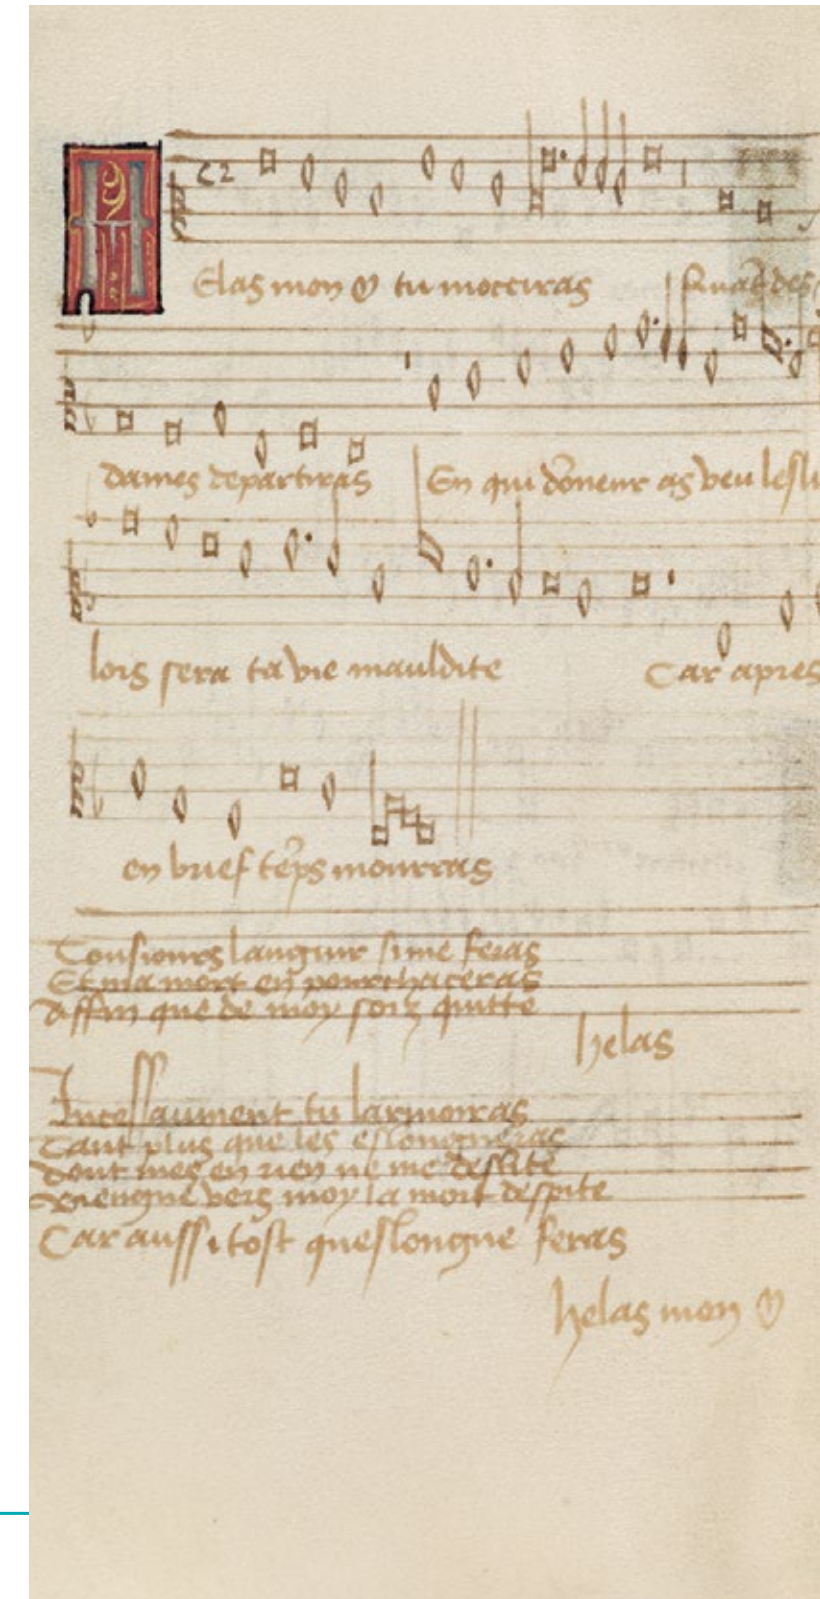 Elas mon tu mocciras
dames departiras En qui doneur as veu lesli
lors sera ta vie mauldite Car apres
en brief teps mourras
Tousiours languir si me feras
Et ma mort en pourchaceras
Affin que de moy soiz quitte
helas
Incessaument tu larmoiras
Tant plus que les eslongneras
Dont mes en rien ne me deslite
viengne vers moy la mort despite
Car aussi tost queslongne feras
helas mon